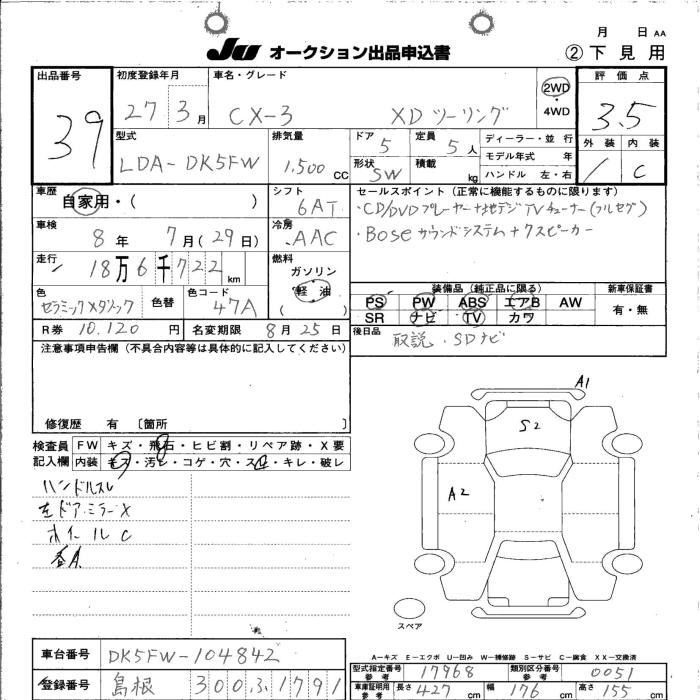 月 日 AA
JU オークション出品申込書 ②下見用
出品番号 39
初度登録年月 27 3月
車名・グレード CX-3 XDツーリング
2WD ・ 4WD
評価点 3.5
型式 LDA-DK5FW
排気量 1,500 CC
ドア 5
定員 5人
形状 SW
積載 kg
ディーラー・並行
モデル年式 年
ハンドル 左・右
外装 内装
/ C
車歴 自家用・( )
シフト 6AT
セールスポイント (正常に機能するものに限ります)
・CD/DVDプレーヤー+地デジTVチューナー(フルセグ)
・Boseサウンドシステム+7スピーカー
車検 8年 7月(29日)
冷房 AAC
走行 18万6千722 km
燃料 ガソリン
軽油
( )
色 セラミックメタリック
色替
色コード 47A
装備品 (純正品に限る) 新車保証書
PS PW ABS エアB AW 有・無
SR ナビ TV カワ
R券 10,120円 名変期限 8月25日
後日品 取説・SDナビ
注意事項申告欄 (不具合内容等は具体的に記入してください)
修復歴 有 〔箇所 〕
検査員 FW キズ・飛石・ヒビ割・リペア跡・X要
記入欄 内装 キズ・汚レ・コゲ・穴・スレ・キレ・破レ
ハンドルスレ
左ドアミラーX
ホイールC
A1
S2
A2
スペア
A−キズ E−エクボ U−凹み W−補修跡 S−サビ C−腐食 XX−交換済
車台番号 DK5FW-104842
型式指定番号 参考 17968 類別区分番号 参考 0051
登録番号 島根 300ふ1791
車庫証明用 参考 長さ 427cm 幅 176cm 高さ 155cm